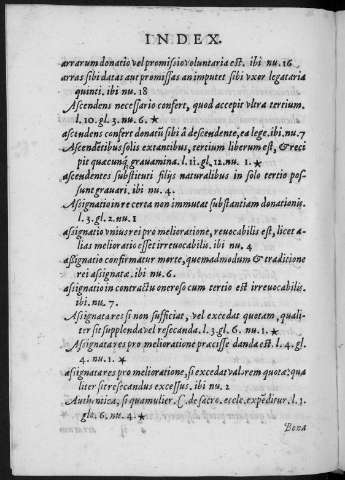 INDEX.
arrarum donatio vel promissio voluntaria est. ibi nu. 16
arras sibi datas aut promissas an imputet sibi vxor legataria
quinti. ibi nu. 18
Ascendens necessario confert, quod accepit vltra tertium.
l. 10. gl. 3. nu. 6. ★
ascendens confert donatū sibi â descendente, ea lege. ibi. nu. 7
Ascendētibus solis extantibus, tertium liberum est, & reci
pit quacunq; grauamina. l. 11. gl. 12. nu. 1. ★
ascendentes substitui filijs naturalibus in solo tertio pos-
sunt grauari. ibi nu. 4.
Assignatio in re certa non immutat substantiam donationis.
l. 3. gl. 2. nu. 1
assignatio vnius rei pro melioratione, reuocabilis est, licet a-
lias melioratio esset irreuocabilis. ibi nu. 4
assignatio confirmatur morte, quemadmodum & traditione
rei assignatæ. ibi nu. 6.
assignatio in contractu oneroso cum tertio est irreuocabilis.
ibi. nu. 7.
Assignata res si non sufficiat, vel excedat quotam, quali-
ter sit supplenda vel resecanda. l. 3. gl. 6. nu. 1. ★
Assignata res pro melioratione præcisse danda est. l. 4. gl.
4. nu. 1. ★
assignata res pro melioratione, si excedat valorem quotæ: qua
liter sit resecandus excessus. ibi nu. 2
Authentica, si qua mulier. C. de sacro. eccle. expēditur. l. 1.
glo. 6. nu. 4. ★
Bona